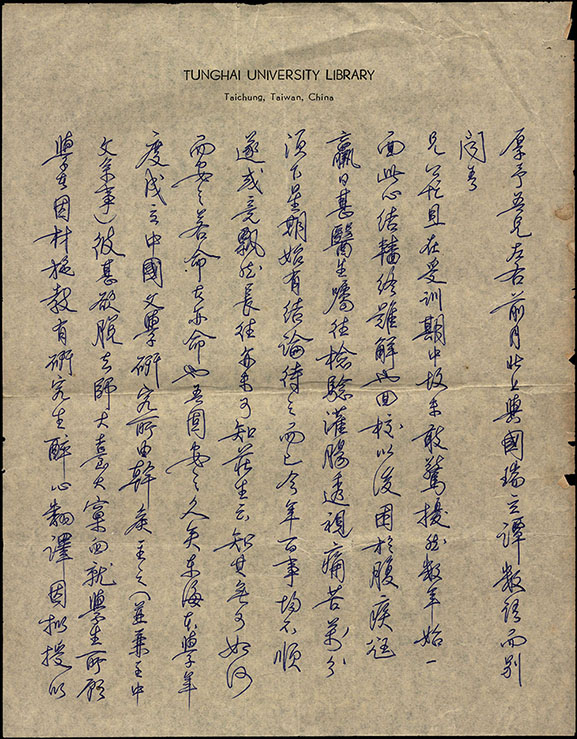 TUNGHAI UNIVERSITY LIBRARY
Taichung, Taiwan, China
厚予吾兄左右前月北上與國瑞立譚數語而別
兄公忙且在受訓期中故未敢驚擾然數年始一
面此心結轖終難解也回校以後困於腹疾尪
羸日甚醫生囑往檢驗灌腸透視痛苦萬分
須下星期始有結論待之而已今年百事均不順
遂或竟飄然長往亦未可知莊生云知其無可如何
而安之若命者亦命也吾固安之久矣東海本學年
度成立中國文學研究所由幹主之(並兼主中
文系事)彼甚欲脫去師大臺大窠臼就學生所願
學者因材施教有研究生醉心翻譯因擬授以